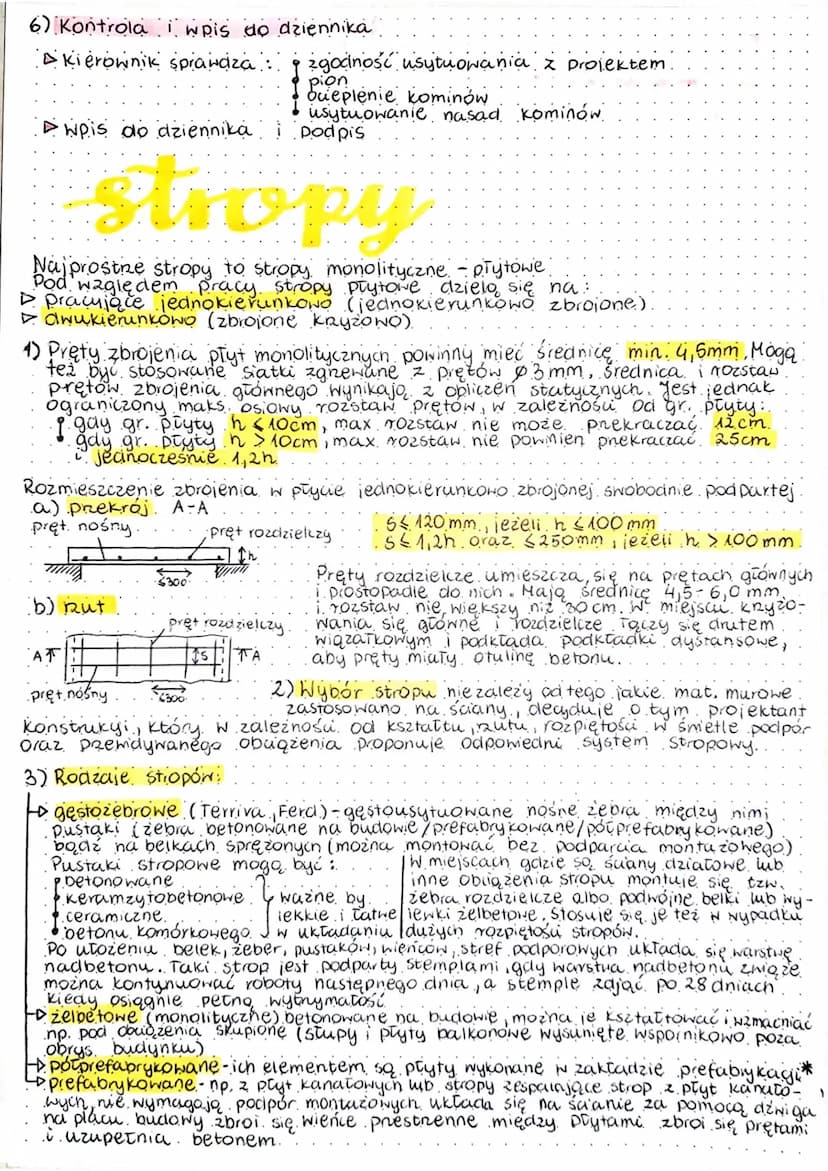 6) Kontrola i wpis do dziennika
▷ kierownik sprawdza: • zgodność usytuowania z projektem
• pion
• ocieplenie kominów
• usytuowanie nasad kominów
▷ wpis do dziennika i podpis
stropy
Najprostrze stropy to stropy monolityczne - płytowe
Pod względem pracy stropy płytowe dzielą się na:
▷ pracujące jednokierunkowo (jednokierunkowo zbrojone)
▷ dwukierunkowo (zbrojone krzyżowo)
1) Pręty zbrojenia płyt monolitycznych powinny mieć średnicę min. 4,5mm. Mogą
też być stosowane siatki zgrzewane z prętów ⌀3mm, średnica i rozstaw
prętów zbrojenia głównego wynikają z obliczeń statycznych. Jest jednak
ograniczony maks. osiowy rozstaw prętów, w zależności od gr. płyty:
• gdy gr. płyty h ≤ 10cm, max rozstaw nie może przekraczać 12cm.
• gdy gr. płyty h > 10cm, max. rozstaw nie powinien przekraczać 25cm
i jednocześnie 1,2h
Rozmieszczenie zbrojenia w płycie jednokierunkowo zbrojonej swobodnie podpartej
a) przekrój A-A
pręt nośny
pręt rozdzielczy
h
≤300
s ≤ 120mm, jeżeli h ≤ 100mm
s ≤ 1,2h oraz ≤ 250mm, jeżeli h > 100mm
Pręty rozdzielcze umieszcza się na prętach głównych
i prostopadle do nich. Mają średnicę 4,5-6,0 mm
i rozstaw nie większy niż 30cm. W miejscu krzyżo-
wania się główne i rozdzielcze łączy się drutem
wiązałkowym i podkłada podkładki dystansowe,
aby pręty miały otulinę betonu.
b) rzut
pręt rozdzielczy
A
s
A
pręt nośny
≤300
2) Wybór stropu nie zależy od tego jakie mat. murowe
zastosowano na ściany, decyduje o tym projektant
konstrukcji, który w zależności od kształtu, rzutu, rozpiętości w świetle podpór
oraz przewidywanego obciążenia proponuje odpowiedni system stropowy.
3) Rodzaje stropów:
▷ gęstożebrowe (Terriva, Ferd) - gęstousytuowane nośne żebra między nimi
pustaki (żebra betonowane na budowie/prefabrykowane/półprefabrykowane)
bądź na belkach sprężonych (można montować bez podparcia montażowego)
Pustaki stropowe mogą być:
• betonowane
• keramzytobetonowe
• ceramiczne
• betonu komórkowego
ważne by
lekkie i łatwe
w układaniu
W miejscach gdzie są ściany działowe lub
inne obciążenia stropu montuje się tzw.
żebra rozdzielcze albo podwójne belki lub wy-
lewki żelbetowe. Stosuje się je też w wypadku
dużych rozpiętości stropów.
Po ułożeniu belek, żeber, pustaków, wieńców, stref podporowych układa się warstwę
nadbetonu. Taki strop jest podparty stemplami, gdy warstwa nadbetonu zwiąże
można kontynuować roboty następnego dnia, a stemple zdjąć po 28 dniach
kiedy osiągnie pełną wytrzymałość
▷ żelbetowe (monolityczne) betonowane na budowie, można je kształtować i wzmacniać
np. pod obciążenia skupione (słupy i płyty balkonowe wysunięte wspornikowo poza
obrys budynku)
▷ półprefabrykowane - ich elementem są płyty wykonane w zakładzie prefabrykacji*
▷ prefabrykowane - np. z płyt kanałowych lub stropy zespalające strop z płyt kanało-
wych, nie wymagają podpór montażowych układa się na ścianie za pomocą dźwiga
na placu budowy zbroi się wieńce przestrzenne między płytami zbroi się prętami
i uzupełnia betonem